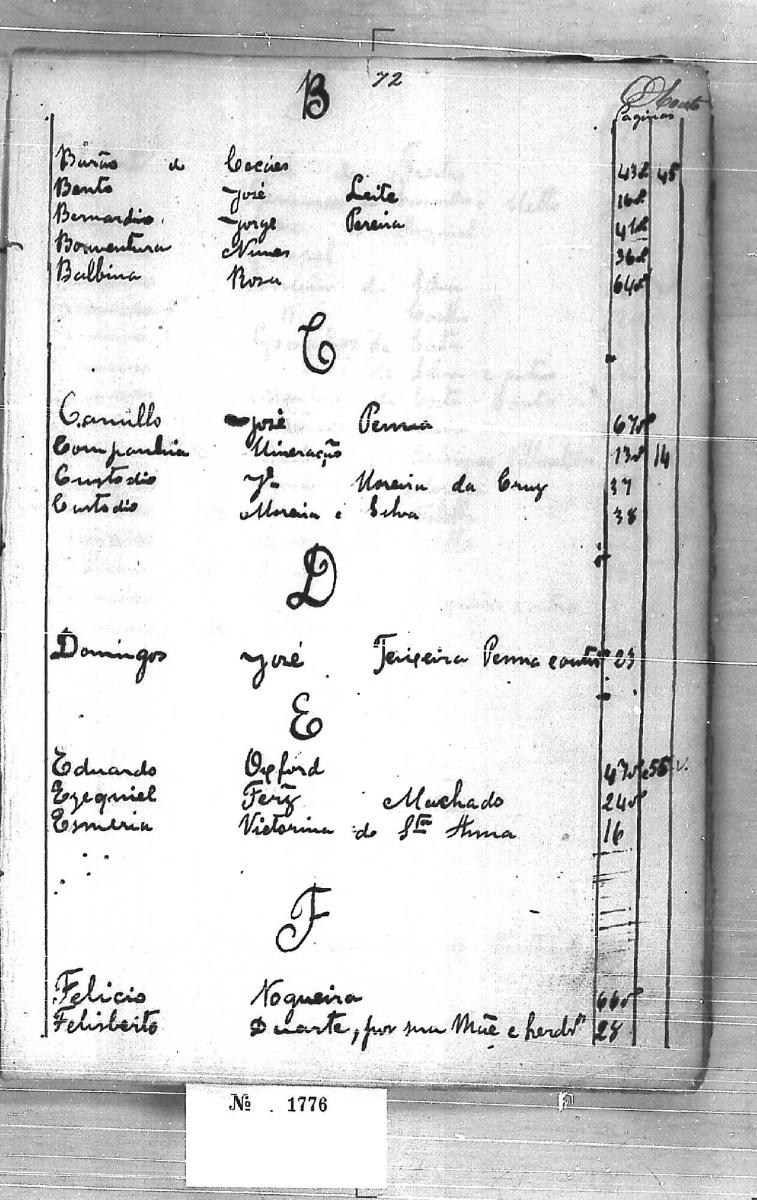 B 72
Paginas
Barão de Cocáes 43v 45
Bento José Leite 16v
Bernardino Jorge Pereira 41v
Boaventura Nunes 36v
Balbina Rosa 64v
C
Camillo José Penna 67v
Companhia Mineração 13v 14
Custodio Je Moreira da Cruz 37
Custodio Moreira e Silva 38
D
Domingos José Teixeira Penna e outro 23
E
Eduardo Oxford 47v e 55v.
Ezequiel Ferz Machado 24v
Esmeria Victorina de Sta Anna 16
F
Felicio Nogueira 66v
Felisberto Duarte, por sua Mãe e herdros 28
Nº 1776